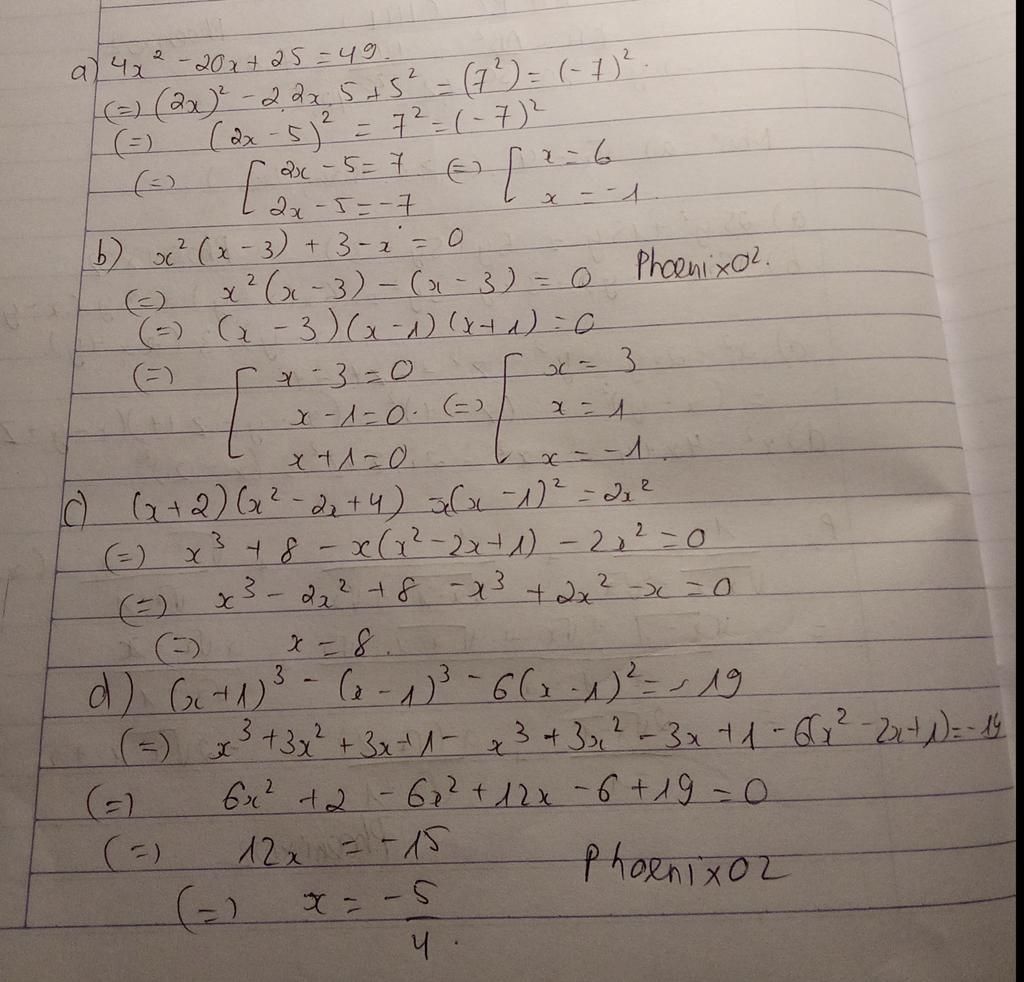 a) 4x² - 20x + 25 = 49.
(=) (2x)² - 2.2x.5 + 5² = (7²) = (-7)².
(=) (2x - 5)² = 7² = (-7)²
(=) [ 2x - 5 = 7 (=) [ x = 6
2x - 5 = -7 x = -1.
b) x²(x - 3) + 3 - x = 0
(=) x²(x - 3) - (x - 3) = 0 Phoenix02.
(=) (x - 3)(x - 1)(x + 1) = 0
(=) [ x - 3 = 0 [ x = 3
x - 1 = 0. (=) x = 1
x + 1 = 0 x = -1.
c) (x + 2)(x² - 2x + 4) - x(x - 1)² = 2x²
(=) x³ + 8 - x(x² - 2x + 1) - 2x² = 0
(=) x³ - 2x² + 8 - x³ + 2x² - x = 0
(=) x = 8.
d) (x + 1)³ - (x - 1)³ - 6(x - 1)² = -19
(=) x³ + 3x² + 3x + 1 - x³ + 3x² - 3x + 1 - 6(x² - 2x + 1) = -19
(=) 6x² + 2 - 6x² + 12x - 6 + 19 = 0
(=) 12x = -15
Phoenix02
(=) x = -5/4.